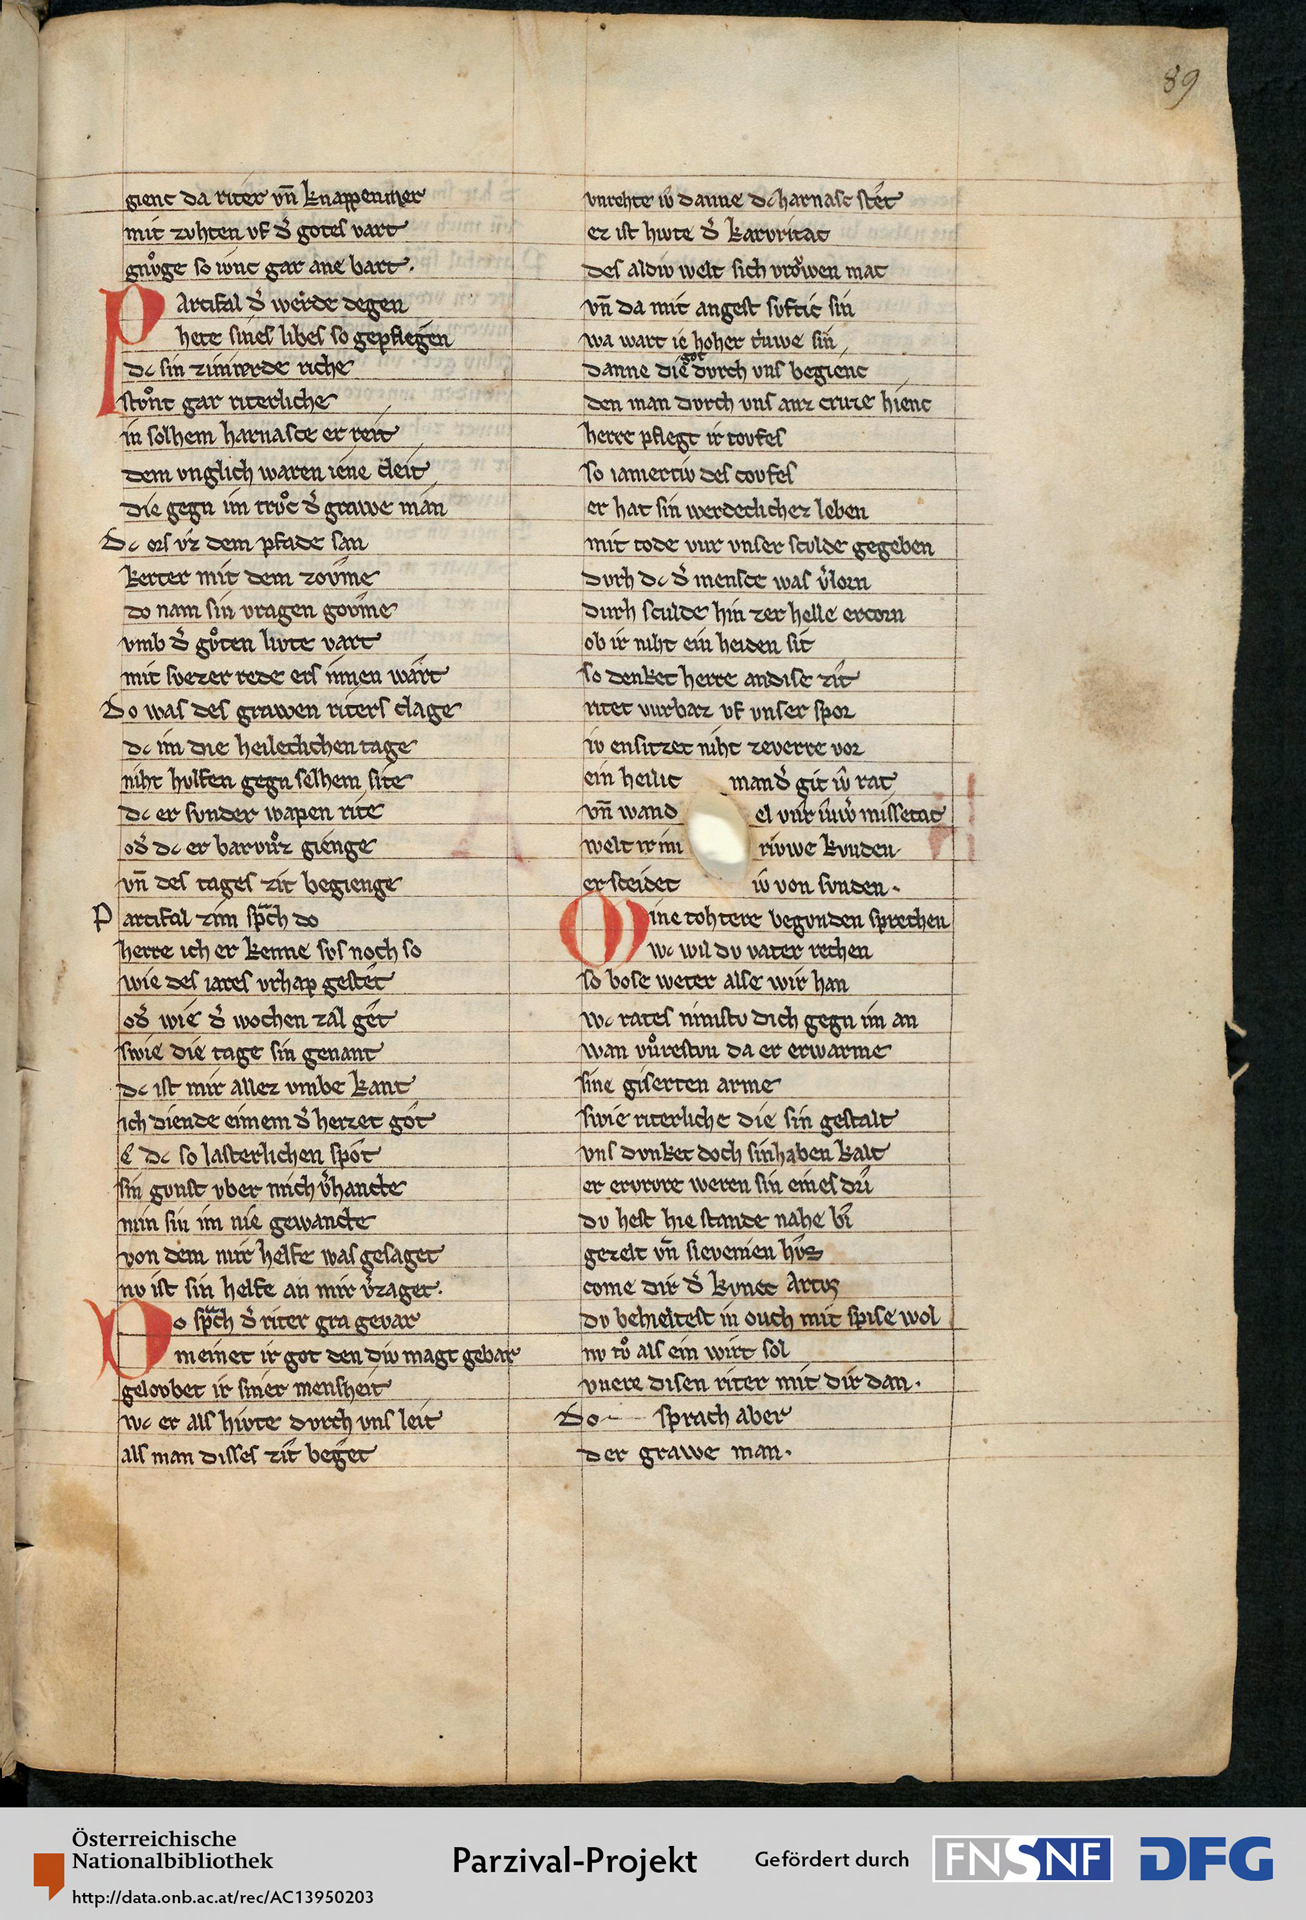 89
gienc da riter vn̄ knappen mer
mit zvhten vf d̕ gotes vart
gnv̊ge so ivnc gar ane bart.
PArcifal d̕ werde degen
hete sines libes so gepflegen
dc sin zimierde riche
stv̊nt gar riterliche
in solhem harnasce er reit
dem vnglich waren iene cleit
die gegn im trv̊c d̕ grawe man
Dc ors vz dem pfade san
kerter mit dem zovme
do nam sin vragen govme
vmb d̕ gv̊ten livte vart
mit svezer rede ers innen wart
Do was des grawen riters clage
dc im die heileclichen tage
niht hvlfen gegn selhem site
dc er svnder wapen rite
od̕ dc er barvv̊z gienge
vn̄ des tages zit begienge
Parcifal zim sp̄ch do
herre ich er kenne svs noch so
wie des iares vrhap gestet
od̕ wie d̕ wochen zal get
swie die tage sin genant
dc ist mir allez vmbe kant
ich diende einem d̕ herzet got
e dc so lasterlichen spot
sin gvnst vber mich v̕hancte
min sin im nie gewancte
von dem mir helfe was gesaget
nv ist sin helfe an mir v̕zaget.
Do sp̄ch d̕ riter gra gevar
meinet ir got den div magt gebar
gelovbet ir siner mensheit
wc er als hivte dvrch vns leit
als man disses zit beget
vnrehte iv̕ danne dc harnasc stet
ez ist hivte d̕ karvritac
des aldiv welt sich vrov̕wen mac
vn̄ da mit angest svftic sin
wa wart ie hoher triuwe sin
danne die got dvrch vns begienc
den man dvrch vns anz cruze hienc
herre pflegt ir tovfes
so iamertiv des covfes
er hat sin werdeclichez leben
mit tode vur vnser sculde gegeben
dvrh dc d̕ mensce was v̕lorn
durh sculde hin zer helle ercorn
ob ir niht ein heiden sit
so denket herre andise zit
ritet vurbaz vf vnser spor
iv ensitzet niht zeverre vor
ein heilic man d̕ git iv̕ rat
vn̄ wandel vur iuw̕ missetat
welt ir im rivwe kvnden
er sceidet iv̕ von svnden.
Mine tohtere begvnden sprechen
wc wil dv vater rechen
so bose weter alse wir han
wc rates nimstv dich gegn im an
wan vv̊restvn da er erwarme
sine giserten arme
swie riterliche die sin gestalt
vns dvnket doch sin haben kalt
er ervrore weren sin eines dri
dv hest hie stande nahe bi
gezelt vn̄ slevenien hvs
come dir d̕ kvnec Artus
dv behieltest in ouch mit spise wol
nv tv̊ als ein wirt sol
vuere disen riter mit dir dan.
Do sprach aber
der grawe man.
Österreichische
Nationalbibliothek
http://data.onb.ac.at/rec/AC13950203
Parzival-Projekt
Gefördert durch
FNSNF
DFG